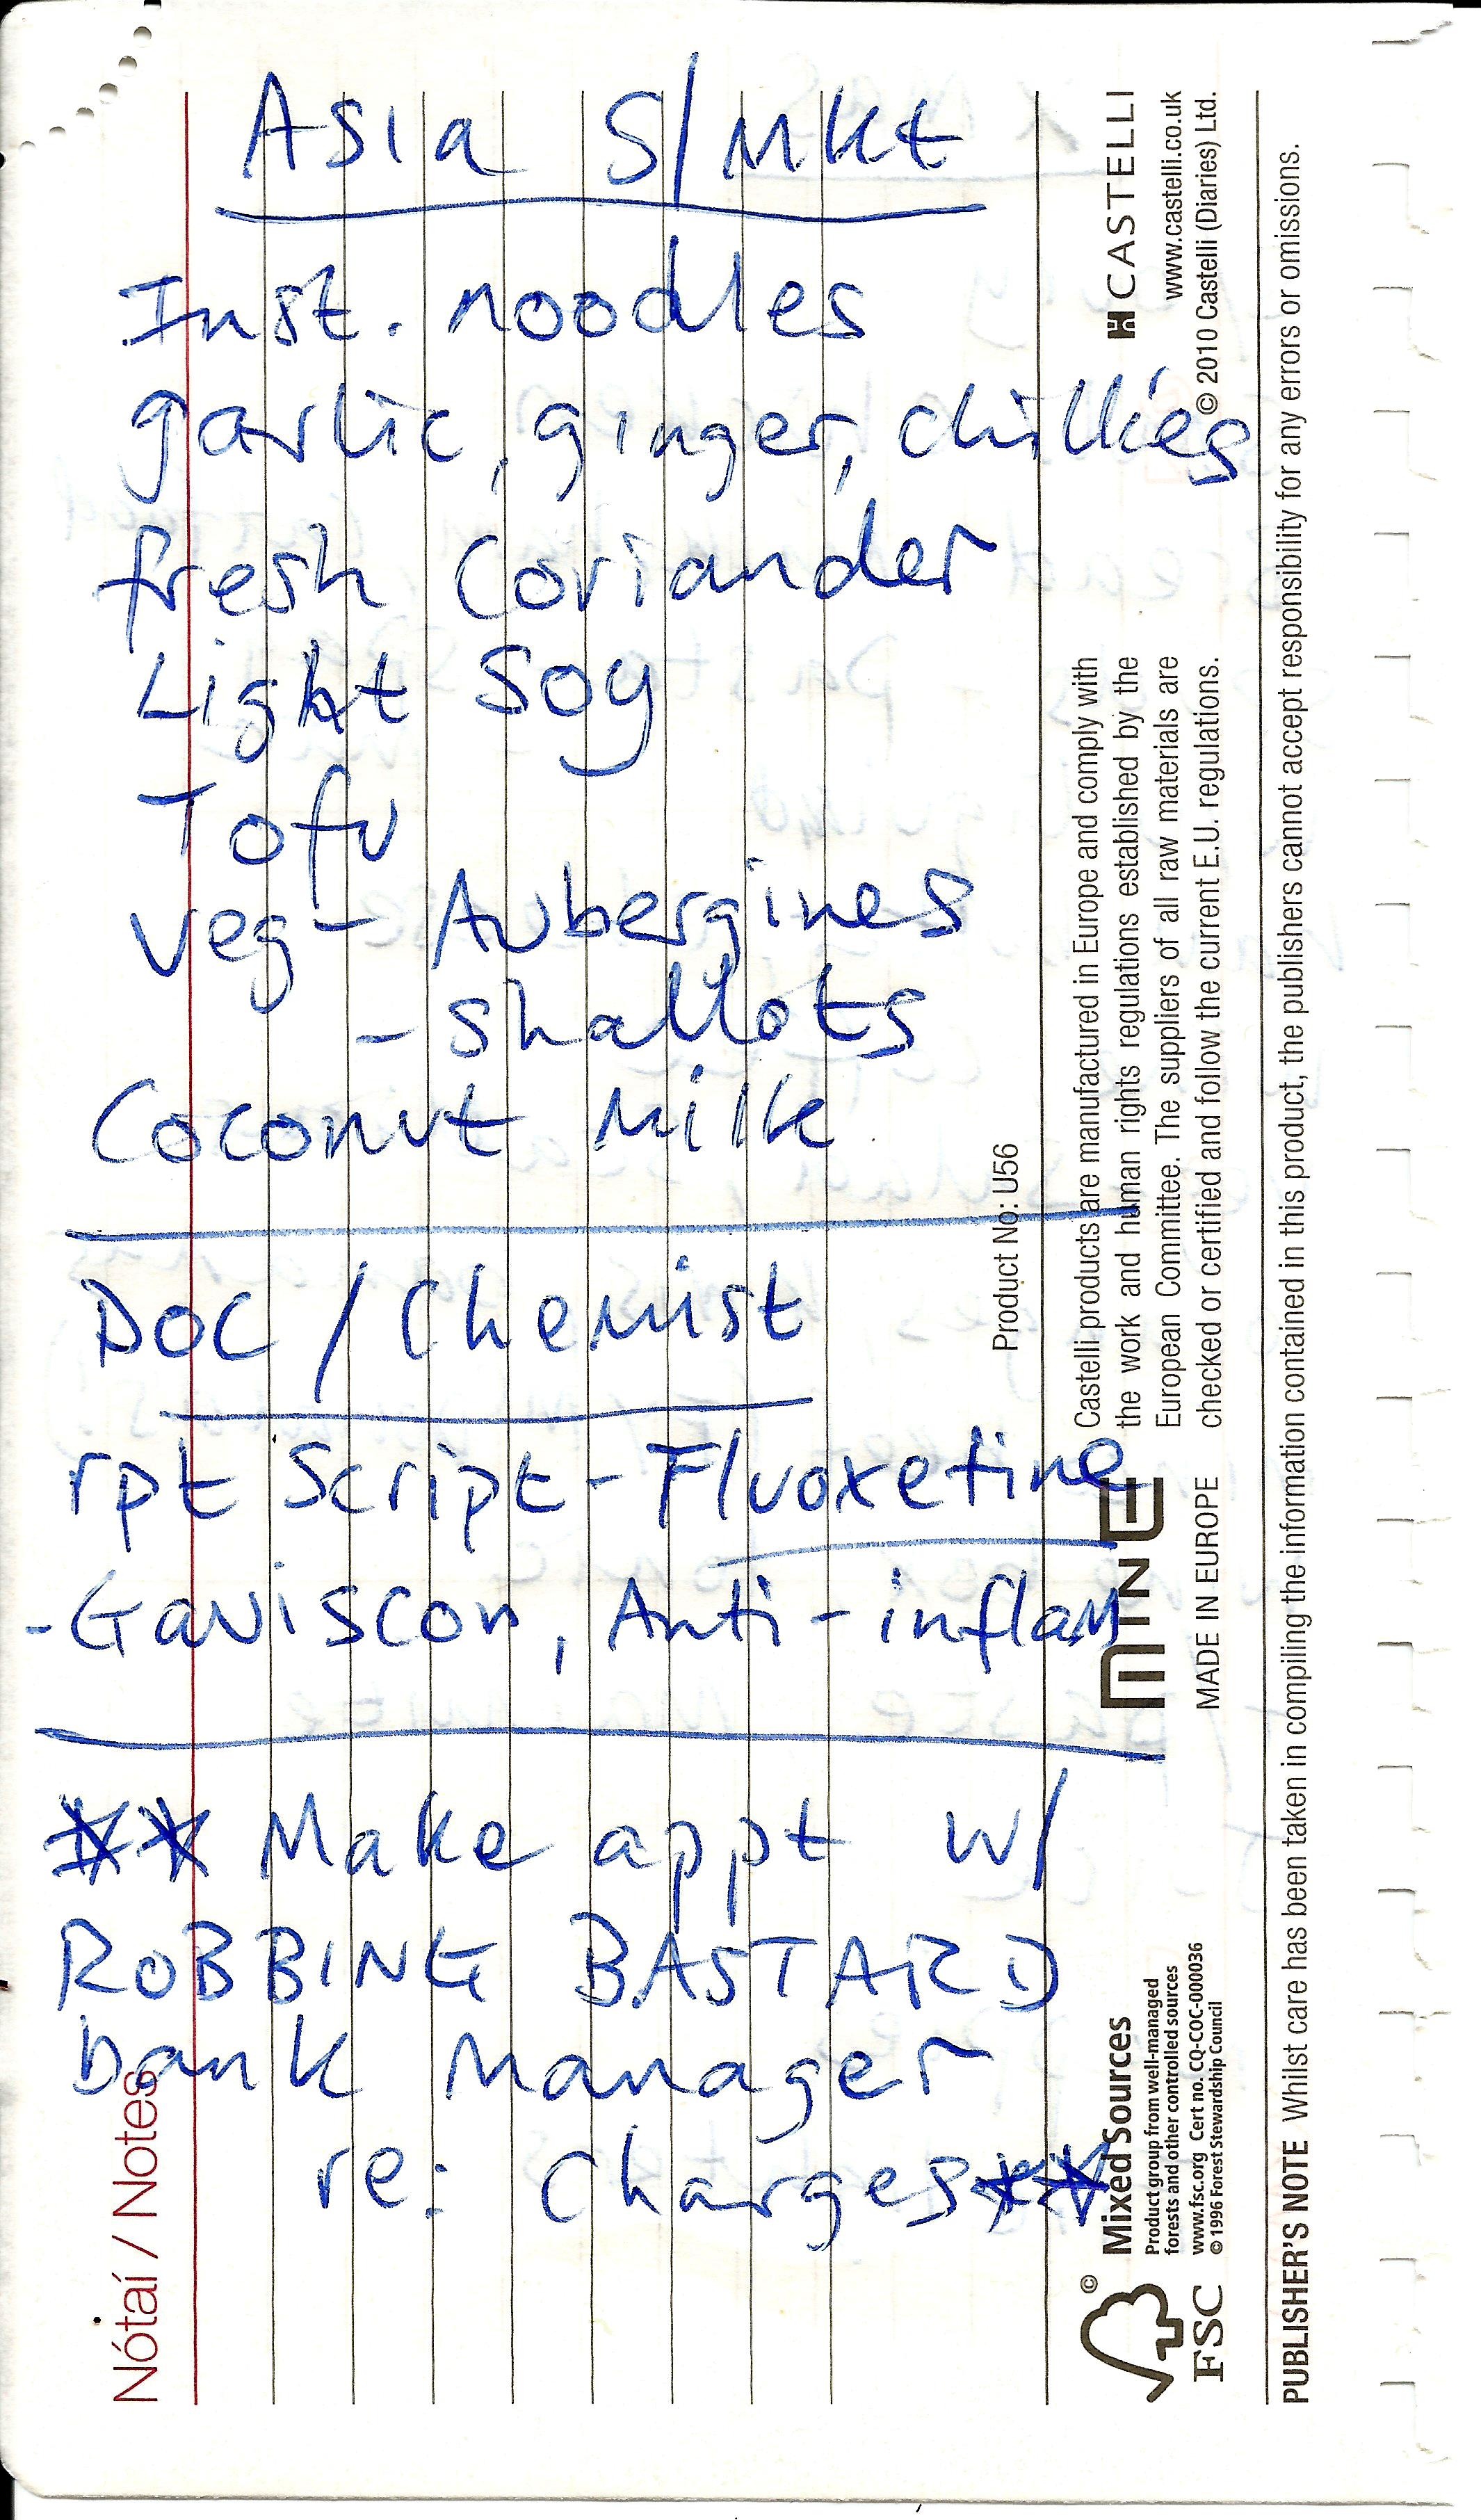 Asia S/Mkt
Inst. noodles
garlic, ginger, chillies
fresh coriander
Light Soy
Tofu
Veg - Aubergines
- Shallots
Coconut Milk
DOC / Chemist
rpt Script - Fluoxetine
- Gaviscon, Anti-inflam
** Make appt w/
ROBBING BASTARD
bank manager
re: charges **
Nótaí / Notes
Product No: U56
Castelli products are manufactured in Europe and comply with
the work and human rights regulations established by the
European Committee. The suppliers of all raw materials are
checked or certified and follow the current E.U. regulations.
CASTELLI
www.castelli.co.uk
© 2010 Castelli (Diaries) Ltd.
MINE
MADE IN EUROPE
FSC
Mixed Sources
Product group from well-managed
forests and other controlled sources
www.fsc.org Cert no. CQ-COC-000036
© 1996 Forest Stewardship Council
PUBLISHER'S NOTE Whilst care has been taken in compiling the information contained in this product, the publishers cannot accept responsibility for any errors or omissions.